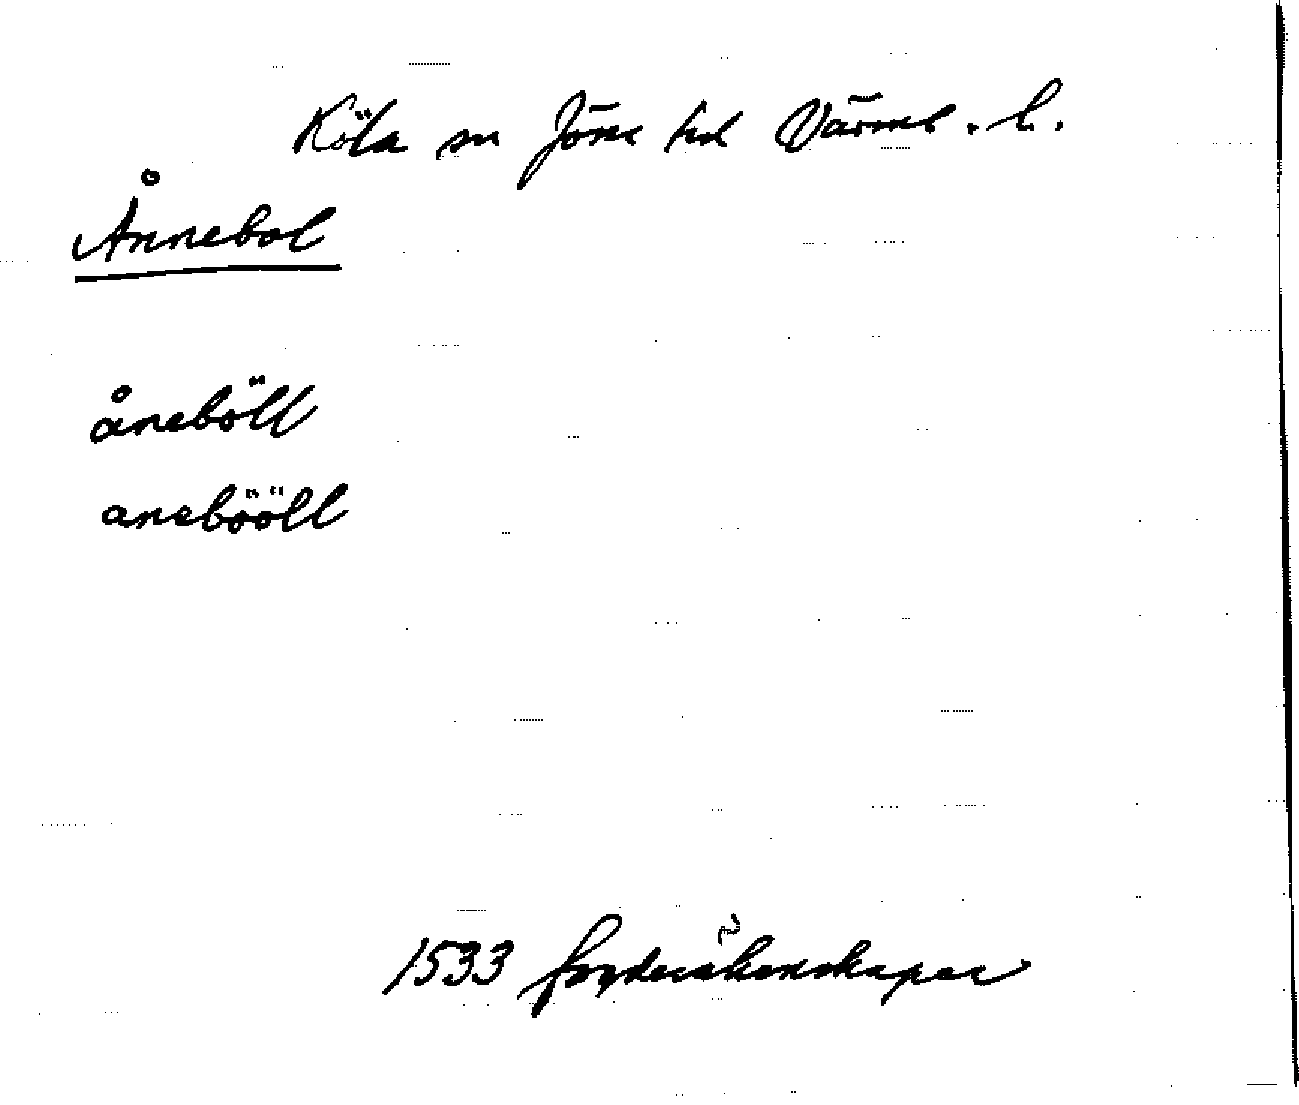 Köla sn Jösse hd Värml. l.
Ånnebol
åneböll
anebööll
1533 fogderäkenskaper